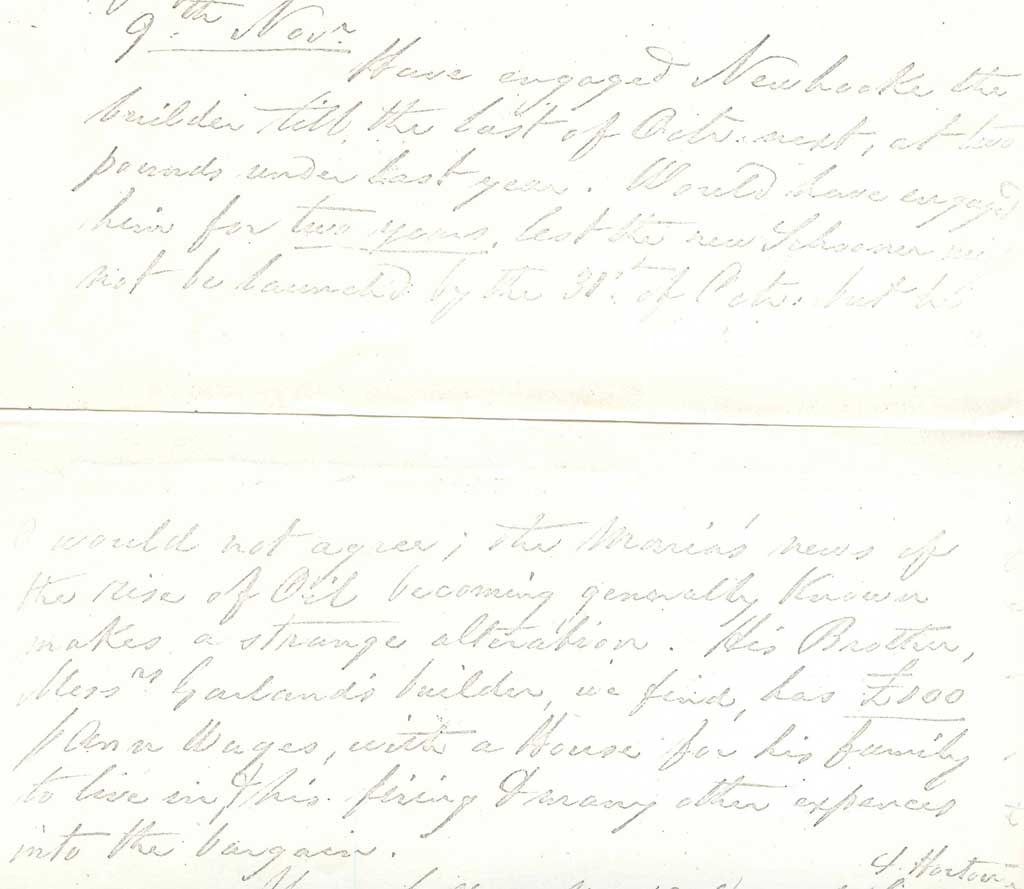 9th Novr
Have engaged Newhooke the
builder till the last of Octr. next, at two
pounds under last year. Would have engaged
him for two years, lest the new Schooner
not be launched by the 31st. of Octr. but he
would not agree; the Maria's news of
the rise of Oil becoming generally Known
makes a strange alteration. His Brother,
Messrs Garland's builder, we find, has £100
p Ann Wages, with a House for his family
to live in, & his firing & many other expences
into the bargain.